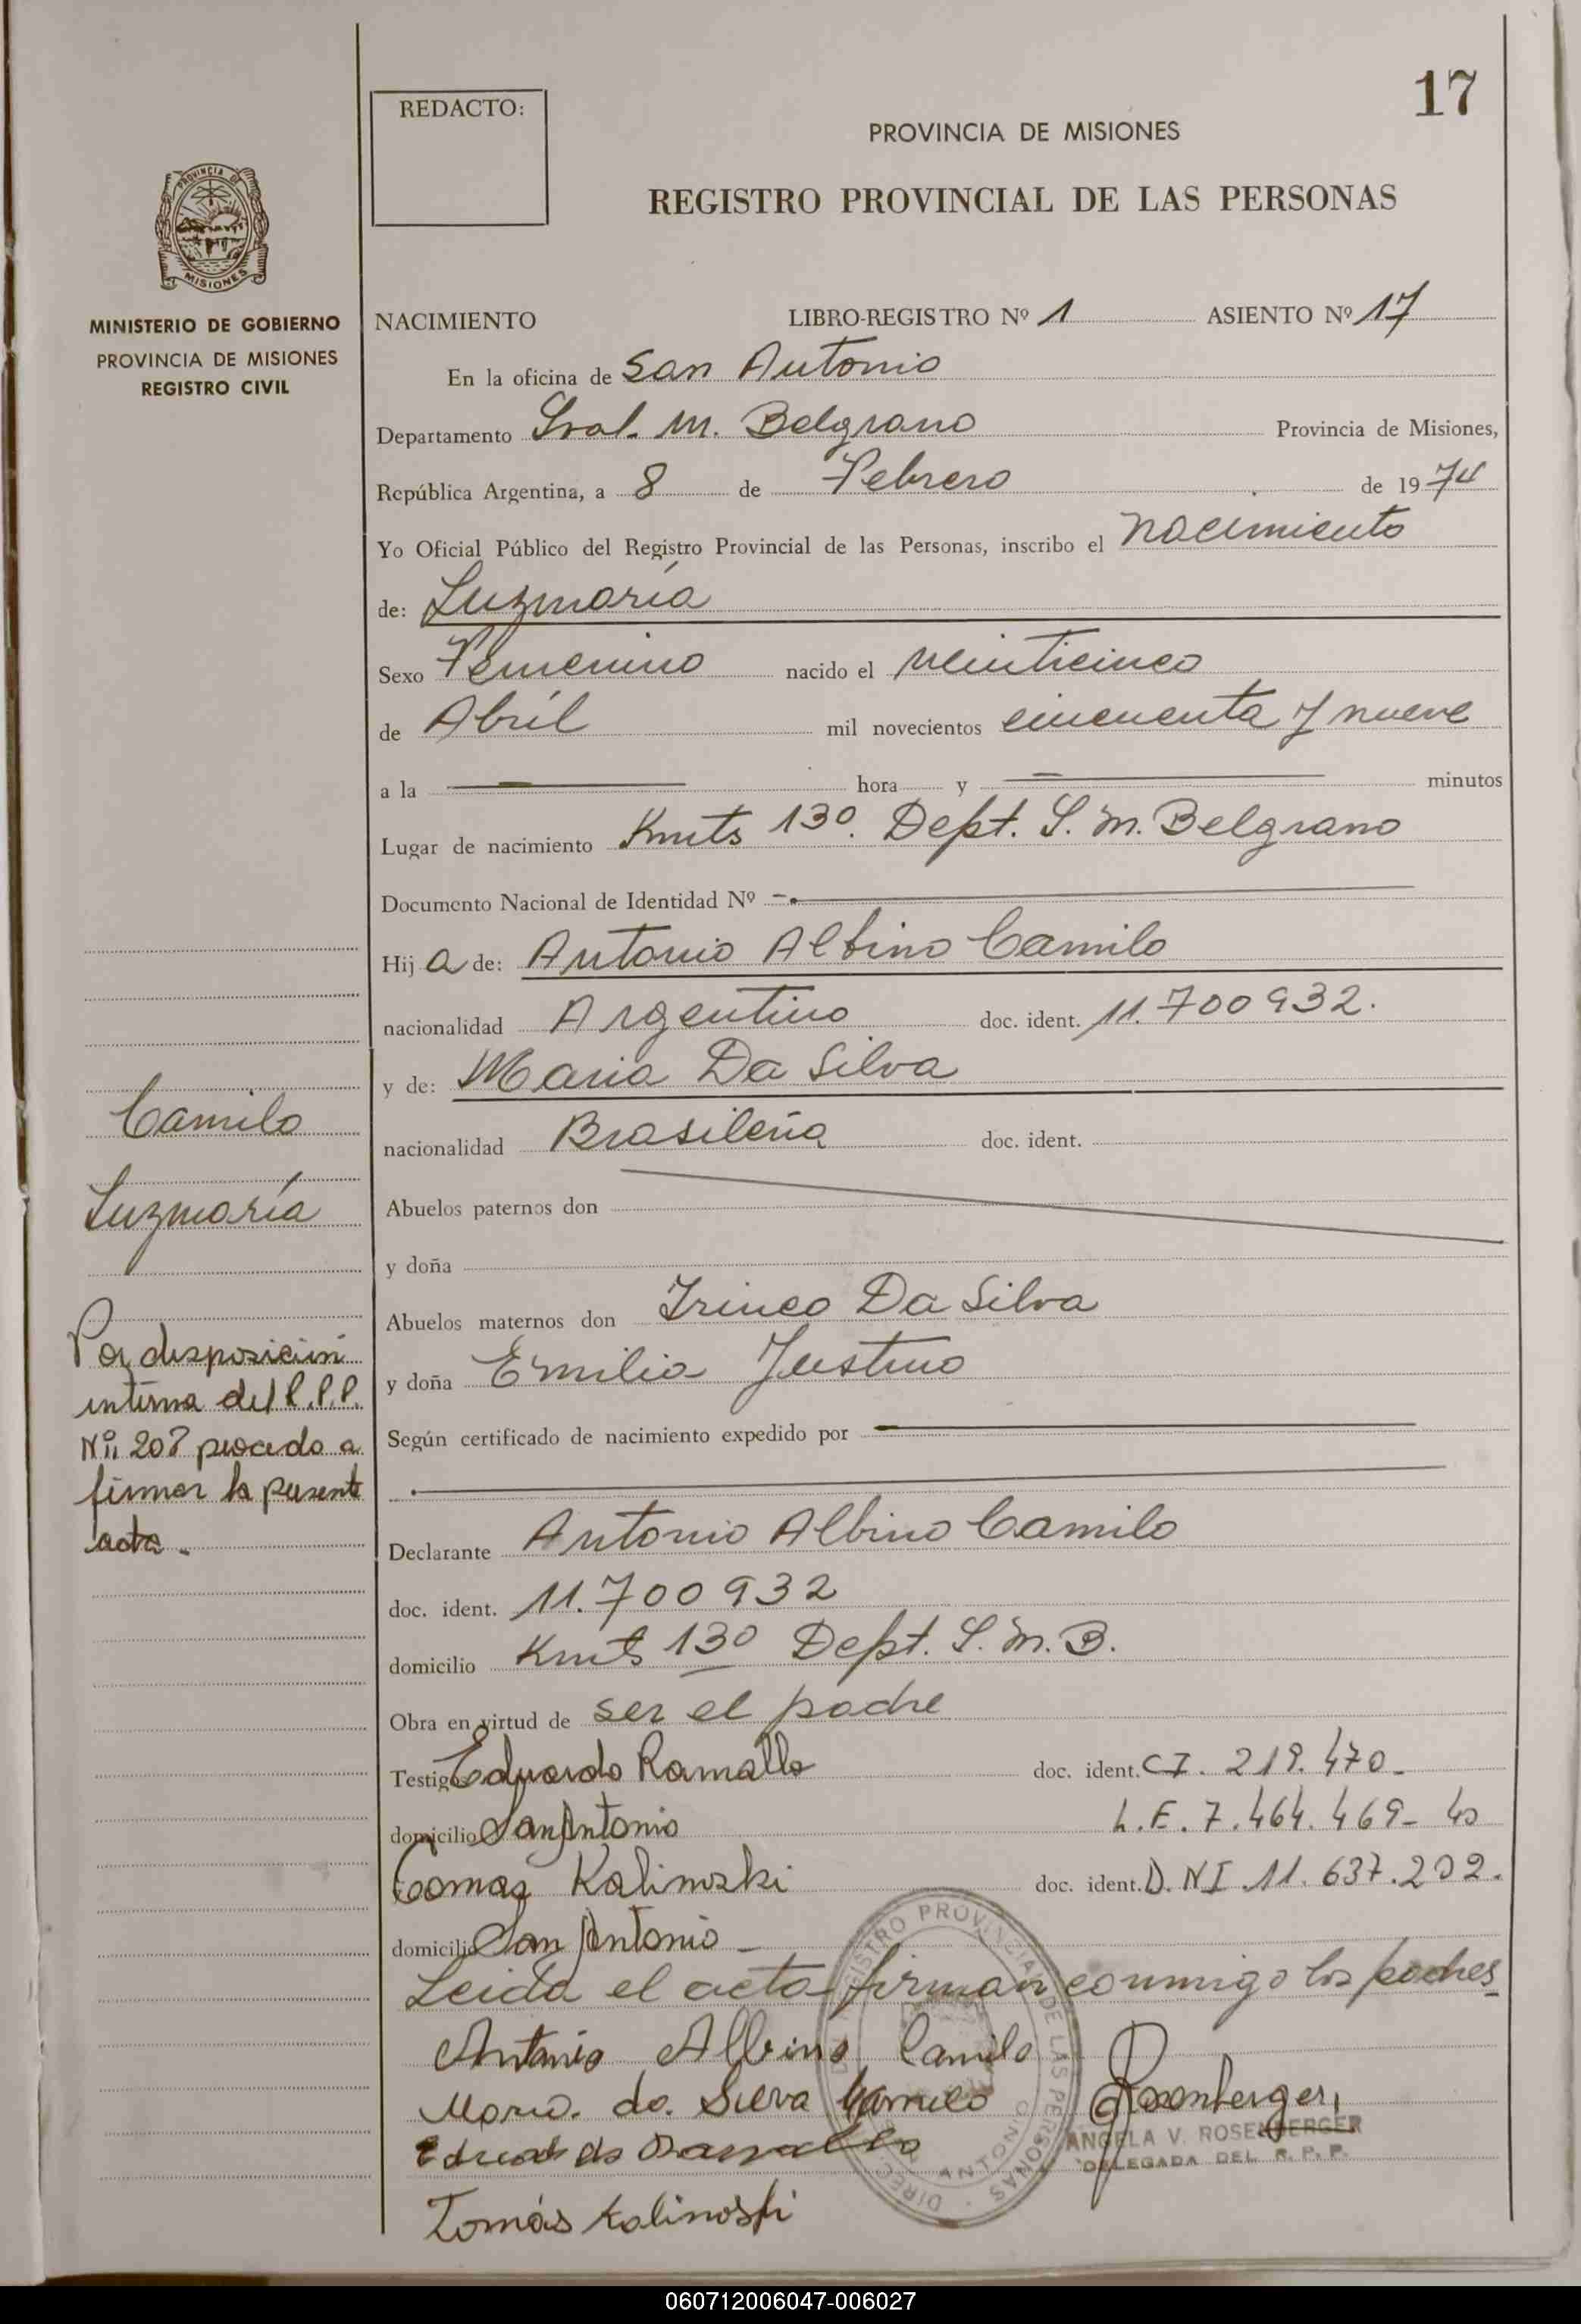 17
REDACTO:
PROVINCIA DE MISIONES
REGISTRO PROVINCIAL DE LAS PERSONAS
PROVINCIA DE
MISIONES
MINISTERIO DE GOBIERNO
PROVINCIA DE MISIONES
REGISTRO CIVIL
NACIMIENTO LIBRO-REGISTRO Nº 1 ASIENTO Nº 17
En la oficina de San Antonio
Departamento Gral. M. Belgrano Provincia de Misiones,
República Argentina, a 8 de Febrero de 1974
Yo Oficial Público del Registro Provincial de las Personas, inscribo el nacimiento
de: Luzmaría
Sexo Femenino nacido el veinticinco
de Abril mil novecientos cincuenta y nueve
a la hora y minutos
Lugar de nacimiento Kmts 130. Dept. G. M. Belgrano
Documento Nacional de Identidad Nº
Hij a de: Antonio Albino Camilo
nacionalidad Argentino doc. ident. 11.700932.
y de: Maria Da Silva
nacionalidad Brasileña doc. ident.
Abuelos paternos don
y doña
Abuelos maternos don Irineo Da Silva
y doña Emilia Justino
Según certificado de nacimiento expedido por
Declarante Antonio Albino Camilo
doc. ident. 11.700932
domicilio Kmts 130 Dept. G. M. B.
Obra en virtud de ser el padre
Testigos Eduardo Ramallo doc. ident. CI. 219.470-
domicilio San Antonio L.E. 7.464.469-
Tomas Kalinoski doc. ident. D.NI.11.637.202.
domicilio San Antonio -
Leida el acta firman conmigo los padres
Antonio Albino Camilo
Maria da Silva Camilo
Rosenberger
ANGELA V. ROSENBERGER
DELEGADA DEL R. P. P.
Eduardo Ramallo
Tomás Kalinoski
Camilo
Luzmaría
Por disposición
interna del R.P.P.
Nº 208 procedo a
firmar la presente
acta.-
060712006047-006027